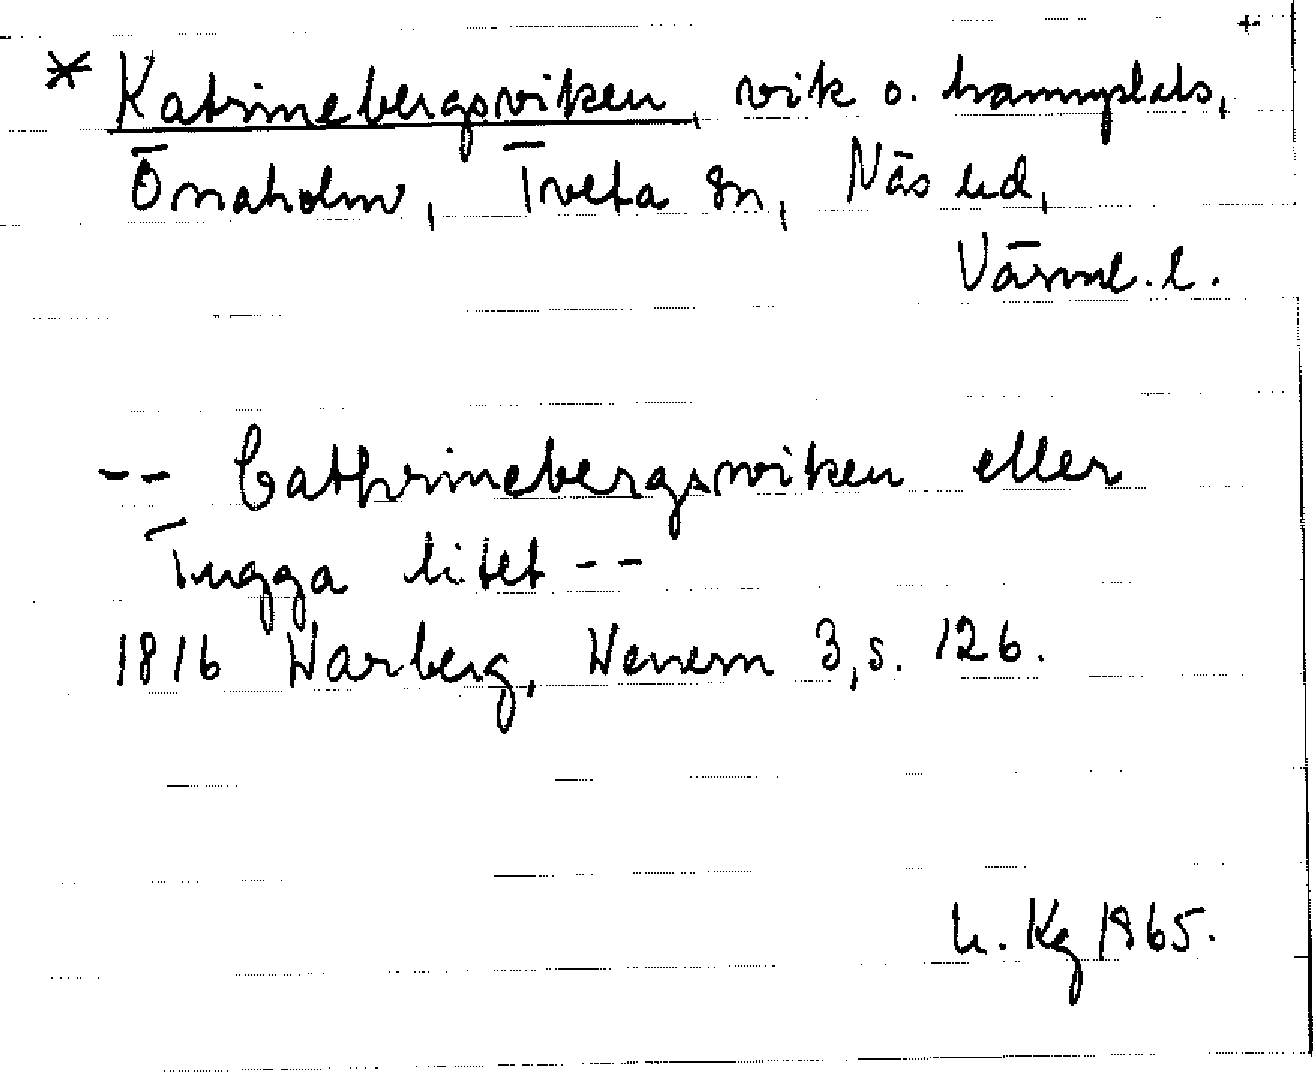 +
* Katrinebergsviken, vik o. hamnplats,
Önaholm, Tveta sn, Näs hd,
Värml. l.
-- Cathrinebergswiken eller
Tugga litet --
1816 Warberg, Wenern 3, s. 126.
h. Kg 1965.